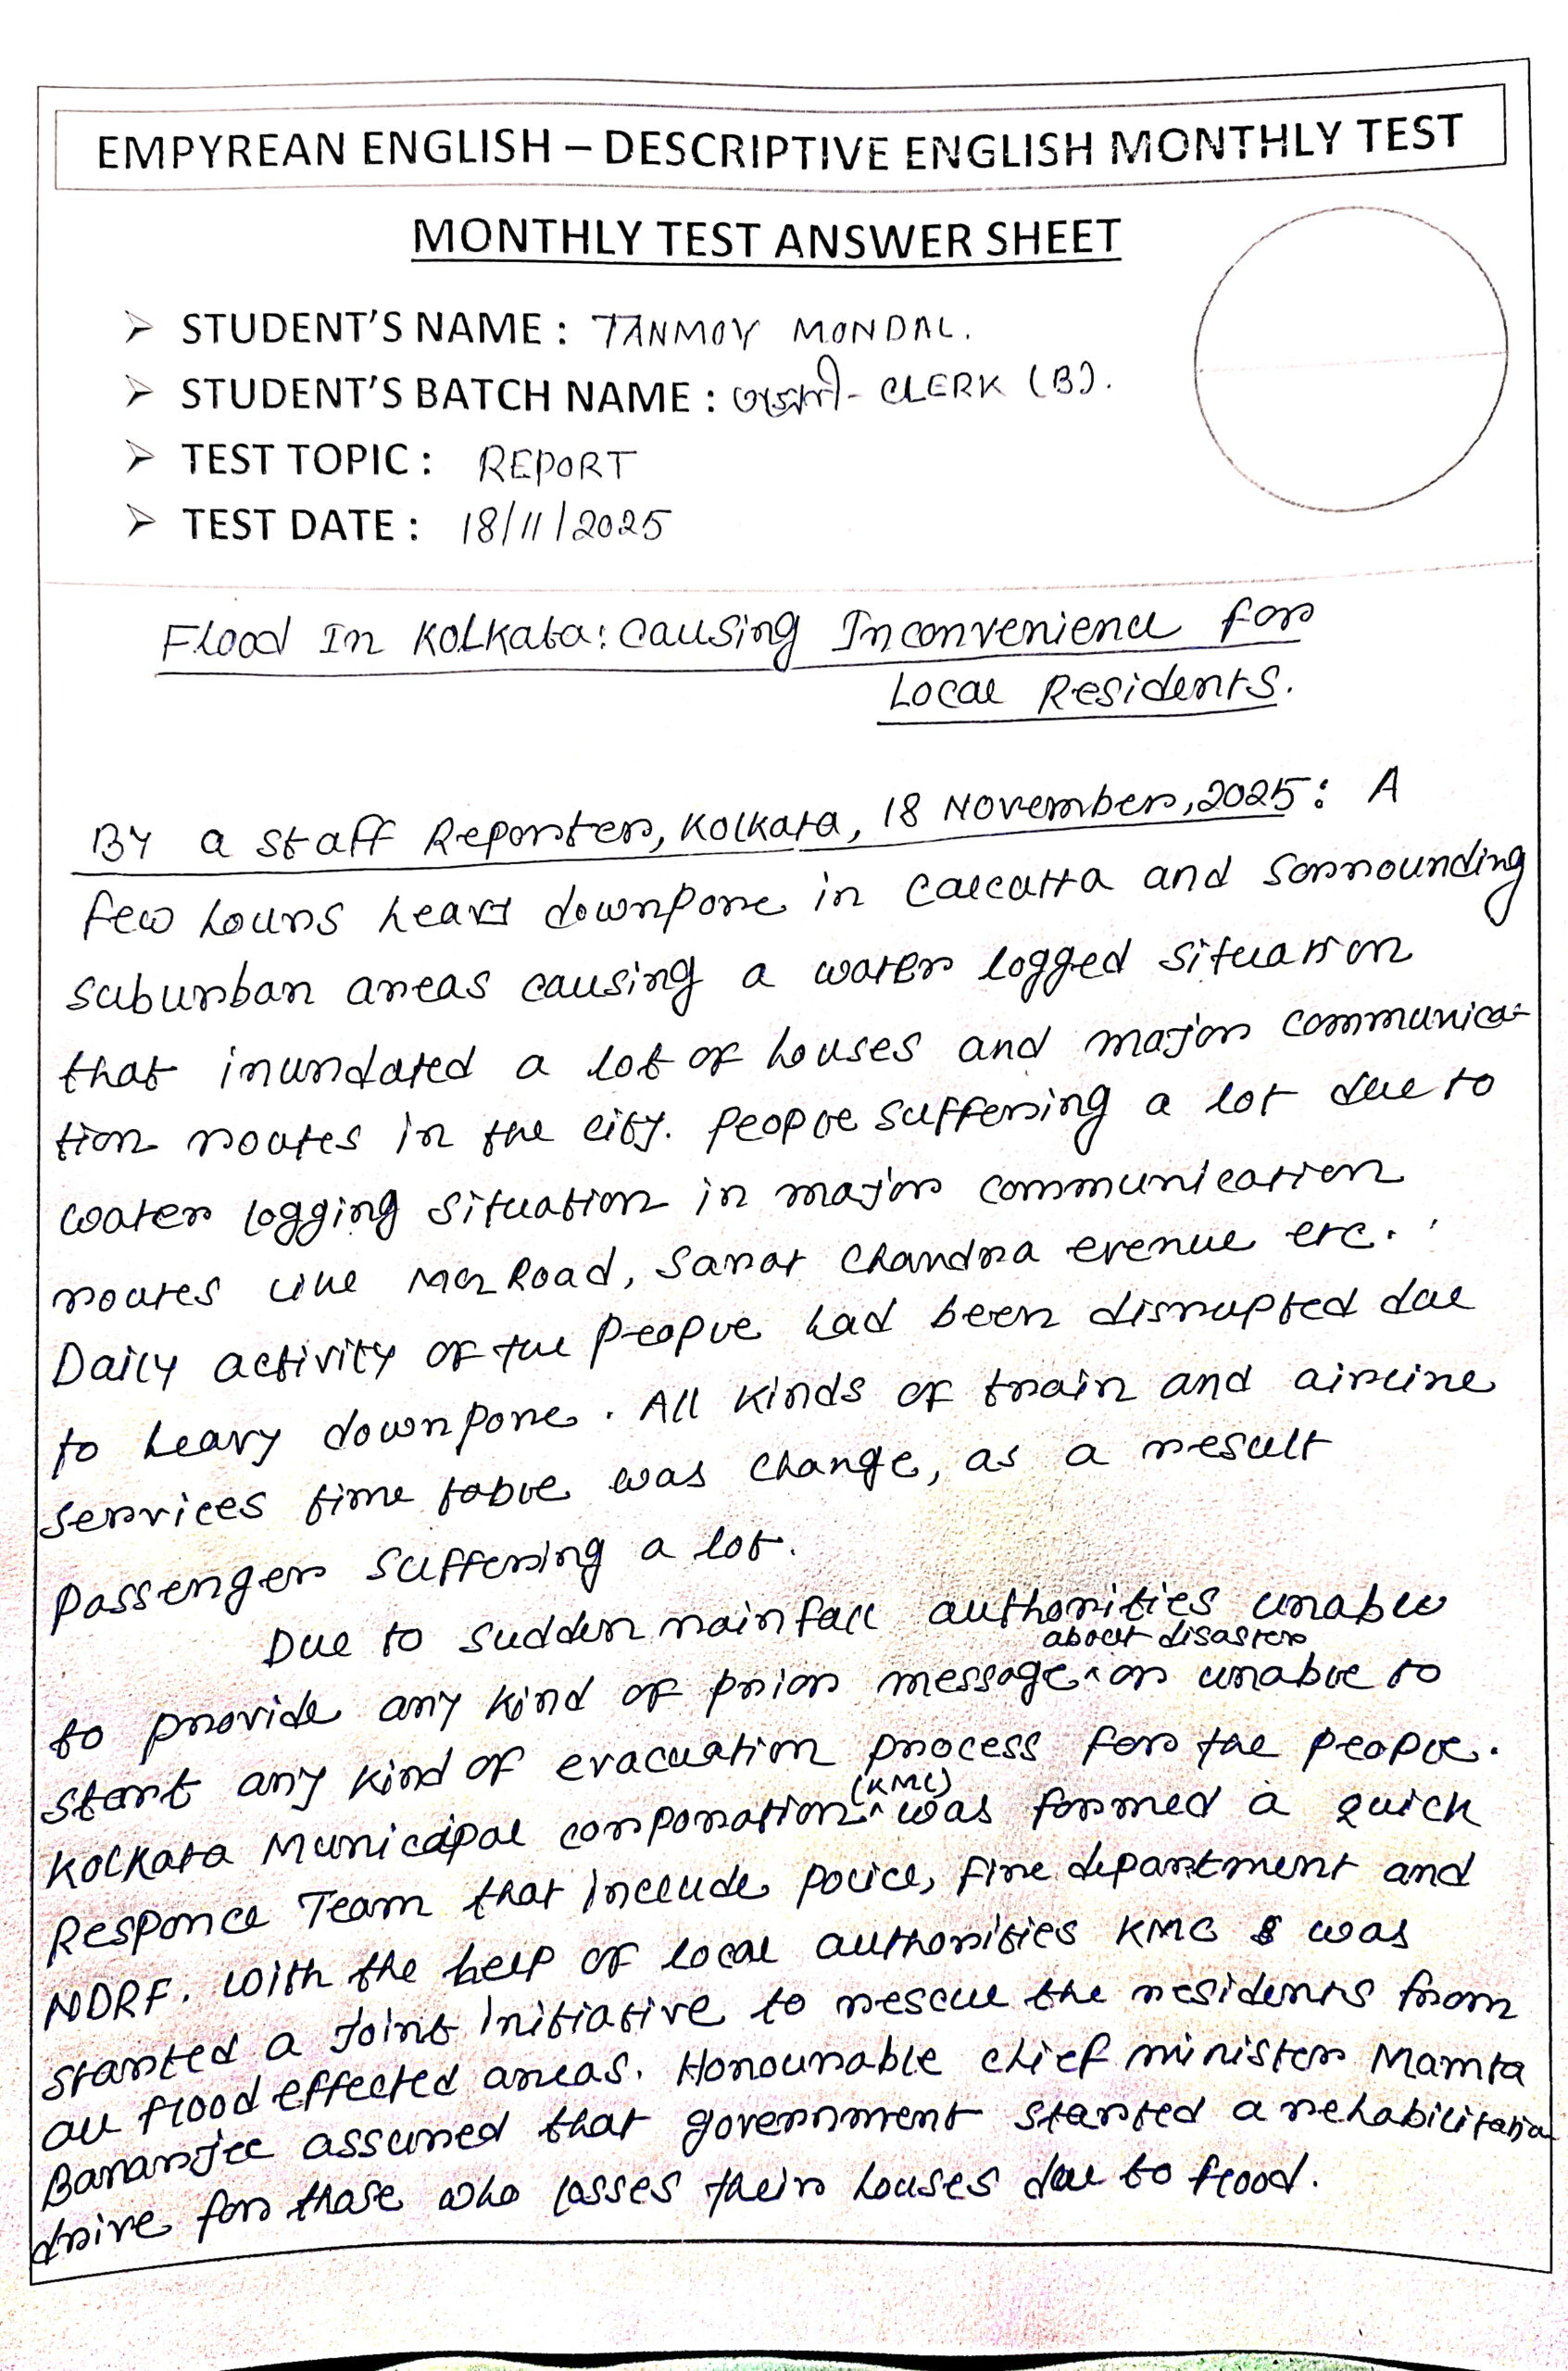 EMPYREAN ENGLISH – DESCRIPTIVE ENGLISH MONTHLY TEST
MONTHLY TEST ANSWER SHEET
➢ STUDENT'S NAME : TANMOY MONDAL.
➢ STUDENT'S BATCH NAME : - CLERK (B).
➢ TEST TOPIC : REPORT
➢ TEST DATE : 18/11/2025
Flood In Kolkata: Causing Inconvenience for
Local Residents.
By a Staff Reporter, Kolkata, 18 November, 2025: A
few hours heavy downpore in Calcutta and sorrounding
suburban areas causing a water logged situation
that inundated a lot of houses and major communica-
tion routes in the city. People suffering a lot due to
water logging situation in major communication
routes like MG Road, Sarat Chandra evenue etc.
Daily activity of the people had been disrupted due
to heavy downpore. All kinds of train and airline
services time table was change, as a result
passenger suffering a lot.
Due to sudden rainfall authorities unable
about disaster
to provide any kind of prior message ^ or unable to
start any kind of evacuation process for the people.
(KMC)
Kolkata Municipal corporation ^ was formed a quick
Responce Team that include police, fire department and
NDRF. With the help of local authorities KMC was
started a joint initiative to rescue the residents from
all flood effected areas. Honourable chief minister Mamta
Banarjee assured that government started a rehabilitation
drive for those who losses their houses due to flood.